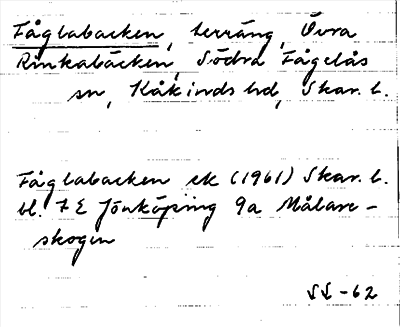 Fåglabacken, terräng, Övra
Rinkabäcken, Södra Fågelås
sn, Kåkinds hd, Skar. l.
Fåglabacken ek (1961) Skar. l.
bl. 7 E Jönköping 9a Målare-
skogen
SS -62